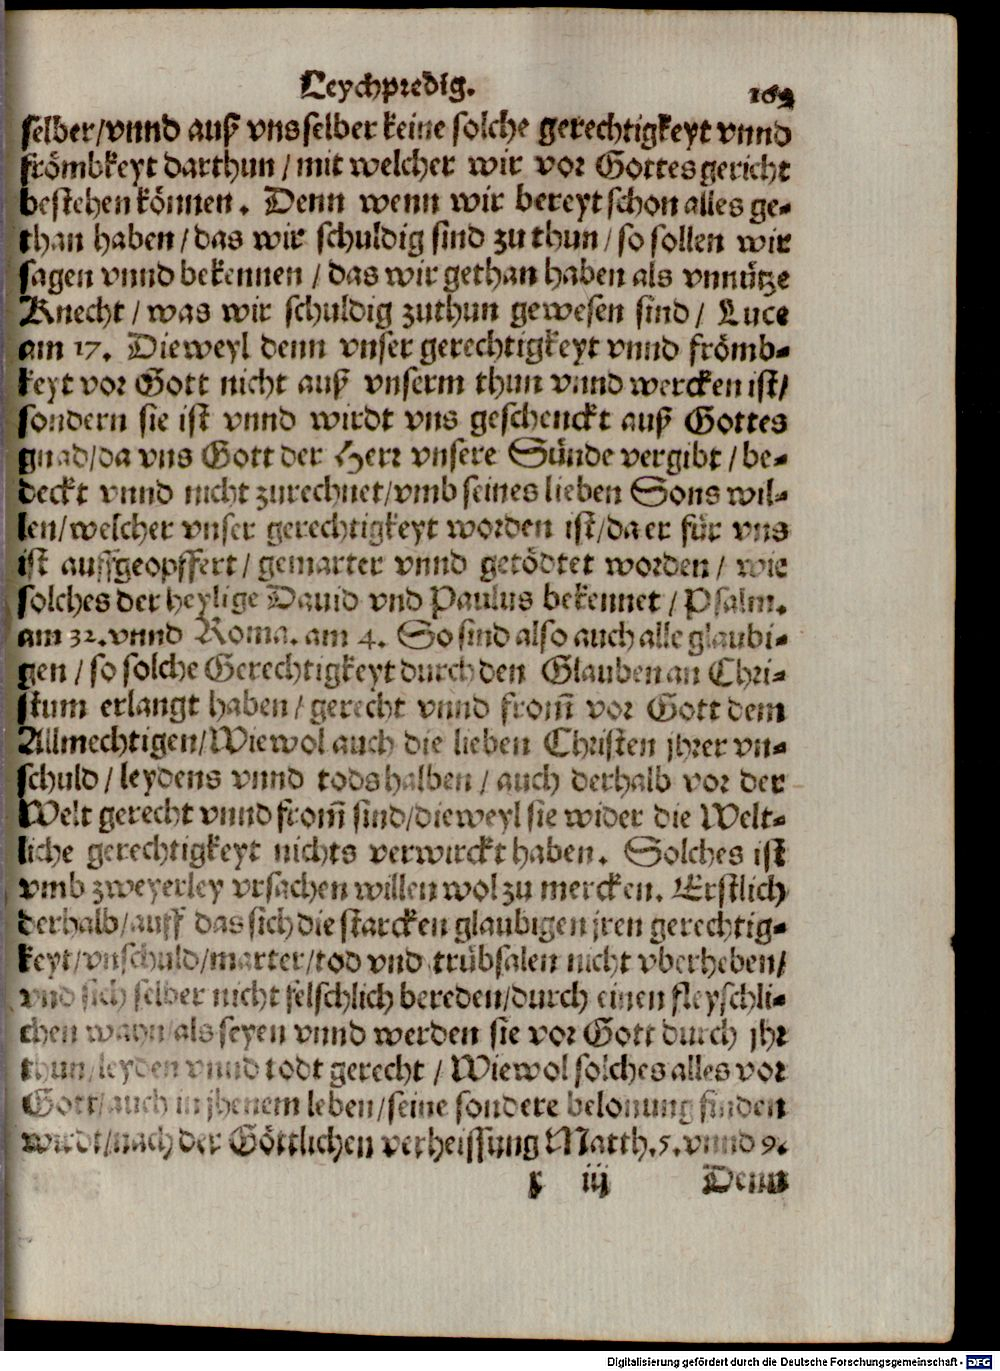 Leychpredig. 163
selber/vnnd auß vns selber keine solche gerechtigkeyt vnnd
frömbkeyt darthun / mit welcher wir vor Gottes gericht
bestehen können. Denn wenn wir bereyt schon alles ge-
than haben / das wir schuldig sind zu thun / so sollen wir
sagen vnnd bekennen / das wir gethan haben als vnnütze
Knecht / was wir schuldig zuthun gewesen sind / Luce
am 17. Dieweyl denn vnser gerechtigkeyt vnnd frömb-
keyt vor Gott nicht auß vnserm thun vnnd wercken ist/
sondern sie ist vnnd wirdt vns geschenckt auß Gottes
gnad/da vns Gott der Herr vnsere Sünde vergibt / be-
deckt vnnd nicht zurechnet/vmb seines lieben Sons wil-
len/welcher vnser gerechtigkeyt worden ist/da er für vns
ist auffgeopffert / gemarter vnnd getödtet worden / wie
solches der heylige Dauid vnd Paulus bekennet / Psalm.
am 32. vnnd Roma. am 4. So sind also auch alle glaubi-
gen / so solche Gerechtigkeyt durch den Glauben an Chri-
stum erlangt haben / gerecht vnnd from̃ vor Gott dem
Allmechtigen/Wiewol auch die lieben Christen jhrer vn-
schuld / leydens vnnd tods halben / auch derhalb vor der
Welt gerecht vnnd from̃ sind/dieweyl sie wider die Welt-
liche gerechtigkeyt nichts verwirckt haben. Solches ist
vmb zweyerley vrsachen willen wol zu mercken. Erstlich
derhalb/auff das sich die starcken glaubigen jren gerechtig-
keyt/vnschuld/marter/tod vnd trübsalen nicht vberheben/
vnd sich selber nicht felschlich bereden/durch einen fleyschli-
chen wahn/als seyen vnnd werden sie vor Gott durch jhr
thun/leyden vnnd todt gerecht / Wiewol solches alles vor
Gott/auch in jhenem leben/seine sondere belonung finden
wirdt/nach der Göttlichen verheissung Matth.5. vnnd 9.
x iij Denn
Digitalisierung gefördert durch die Deutsche Forschungsgemeinschaft - DFG